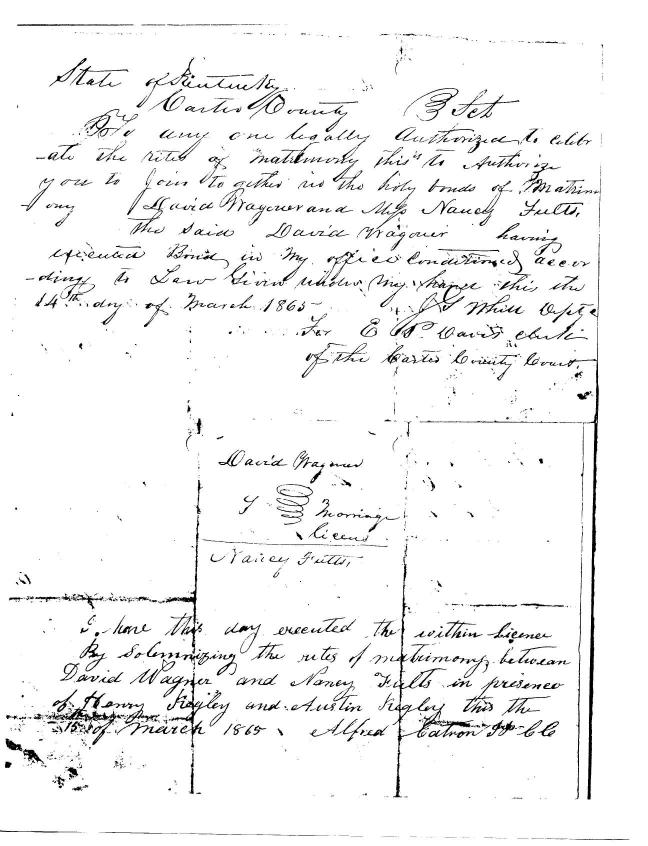 State of Kentucky
Carter County Sct
To any one legally Authorized to celebr
-ate the rites of matrimony this is to Authorize
you to Join to gether in the holy bonds of Matrim
ony David Wagoner and Miss Nancy Fults,
the said David Wagoner having
executed Bond in My office conditioned accor
-ding to Law Given under My hand this the
14th day of March 1865
For E P. Davis clerk
of the Carter County Court,
David Wagner
Marriage
Licens
Nancy Fults,
I have this day executed the within License
By Solemnizing the rites of matrimony between
David Wagner and Nancy Fults in presence
of Henry Kegley and Austin Kegley this the
15 of March 1865 Alfred Catron